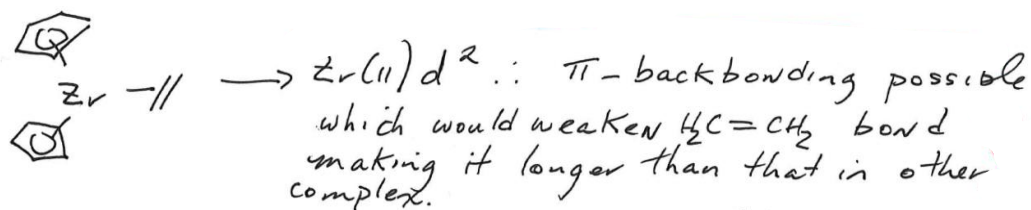 Zr -// → Zr(II) d² ∴ π-backbonding possible
which would weaken H₂C=CH₂ bond
making it longer than that in other
complex.